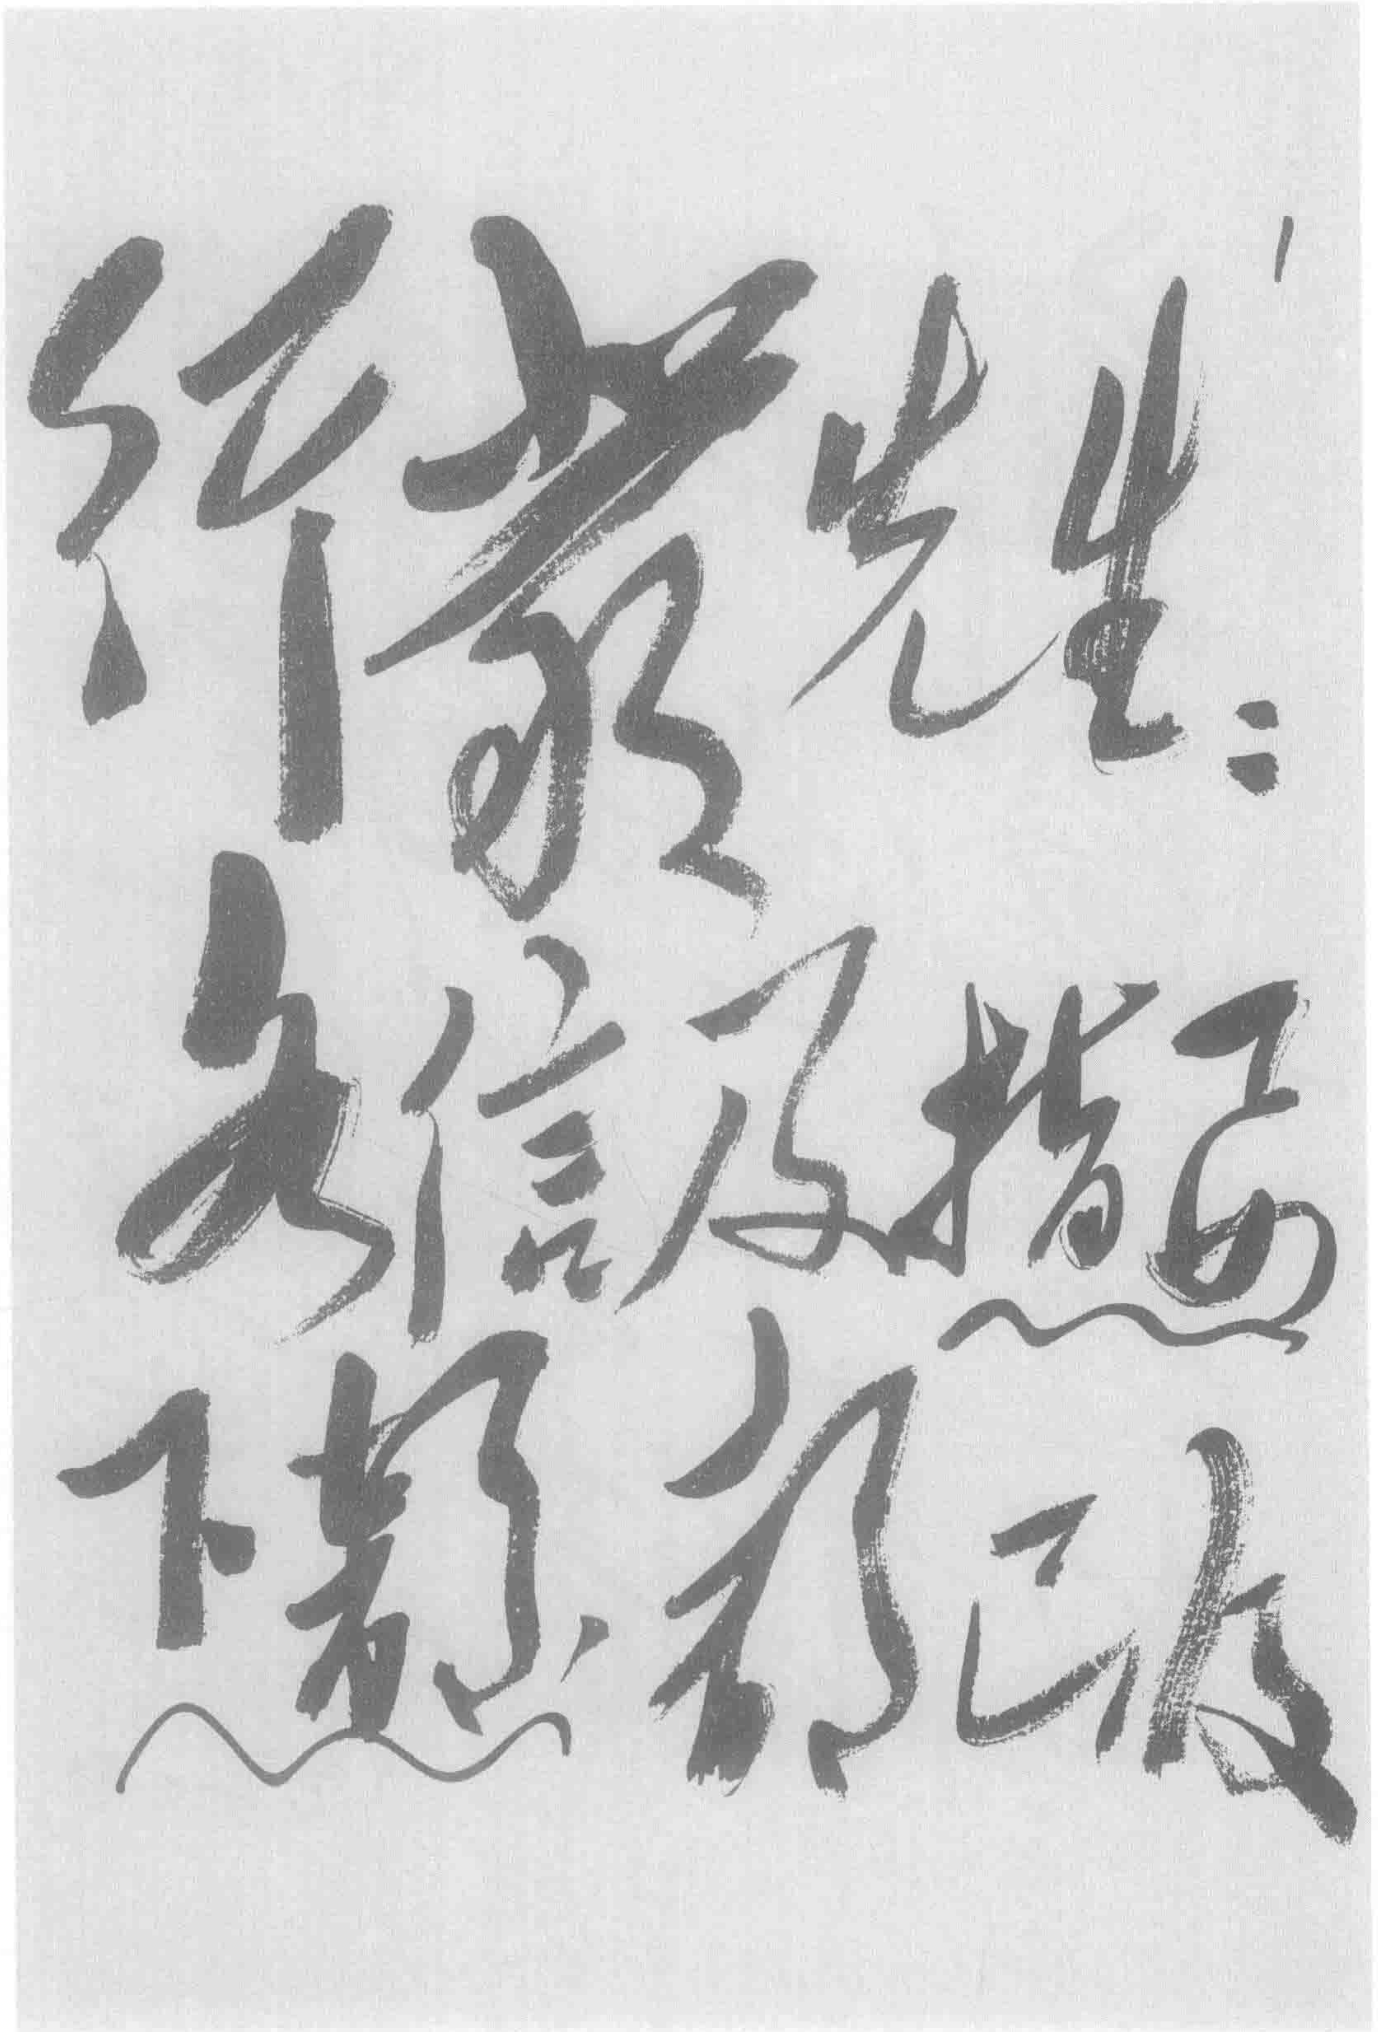 行嚴先生：
各信及指要
下部，都已收